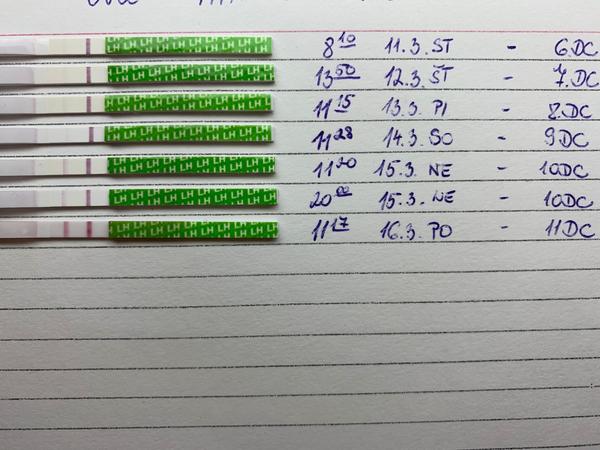 8 10 11.3. ST - 6.DC
13 50 12.3. ŠT - 7.DC
11 15 13.3. PI - 8.DC
11 28 14.3. SO - 9DC
11 20 15.3. NE - 10DC
20 00 15.3. NE - 10DC
11 17 16.3. PO - 11DC
LH LH LH LH LH LH LH LH